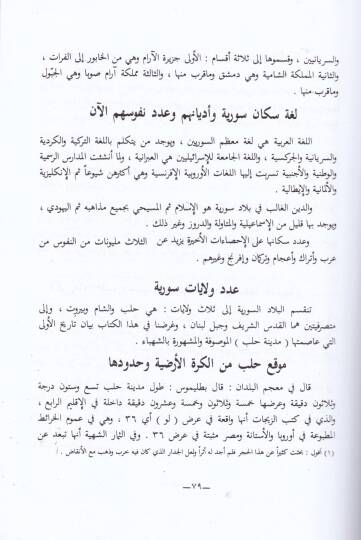 والسريانيين ، وقسموها إلى ثلاثة أقسام : الأولى جزيرة الآرام وهي من الخابور إلى الفرات ،
والثانية المملكة الشامية وهي دمشق وماقرب منها ، والثالثة مملكة آرام صوبا وهي الجبّول
وماقرب منها .
لغة سكان سورية وأديانهم وعدد نفوسهم الآن
اللغة العربية هي لغة معظم السوريين ، ويوجد من يتكلم باللغة التركية والكردية
والسريانية والجركسية ، واللغة الجامعة للإسرائيليين هي العبرانية ، ولما أنشئت المدارس الرسمية
والوطنية والأجنبية تسربت إليها اللغات الأوروبية الإفرنسية وهي أكثرهن شيوعاً ثم الإنكليزية
والألمانية والإيطالية .
والدين الغالب في بلاد سورية هو الإسلام ثم المسيحي بجميع مذاهبه ثم اليهودي ،
ويوجد بها قليل من الإسماعيلية والمتاولة والدروز وغير ذلك .
وعدد سكانها على الإحصاءات الأخيرة يزيد عن الثلاث مليونات من النفوس من
عرب وأتراك وأعجام وتركمان وإفرنج وغيرهم .
عدد ولايات سورية
تنقسم البلاد السورية إلى ثلاث ولايات : هي حلب والشام وبيروت ، وإلى
متصرفيتين هما القدس الشريف وجبل لبنان ، وغرضنا في هذا الكتاب بيان تاريخ الأولى
التي عاصمتها ( مدينة حلب ) الموصوفة والمشهورة بالشهباء .
موقع حلب من الكرة الأرضية وحدودها
قال في معجم البلدان : قال بطليموس : طول مدينة حلب تسع وستون درجة
وثلاثون دقيقة وعرضها خمسة وثلاثون وخمسة وعشرون دقيقة داخلة في الإقليم الرابع ،
والذي في كتب الزيجات أنها واقعة في عرض ( لو ) أي ٣٦ ، وهي في عموم الخرائط
المطبوعة في أوروبا والأستانة ومصر مثبتة في عرض ٣٦ . وفي الثمار الشهية أنها تبعد عن
(١) أقول : بحثت كثيراً عن هذا الحجر فلم أجد له أثراً ولعل الجدار الذي كان فيه خرب وذهب مع الأنقاض .
ــ ٧٩ ــ